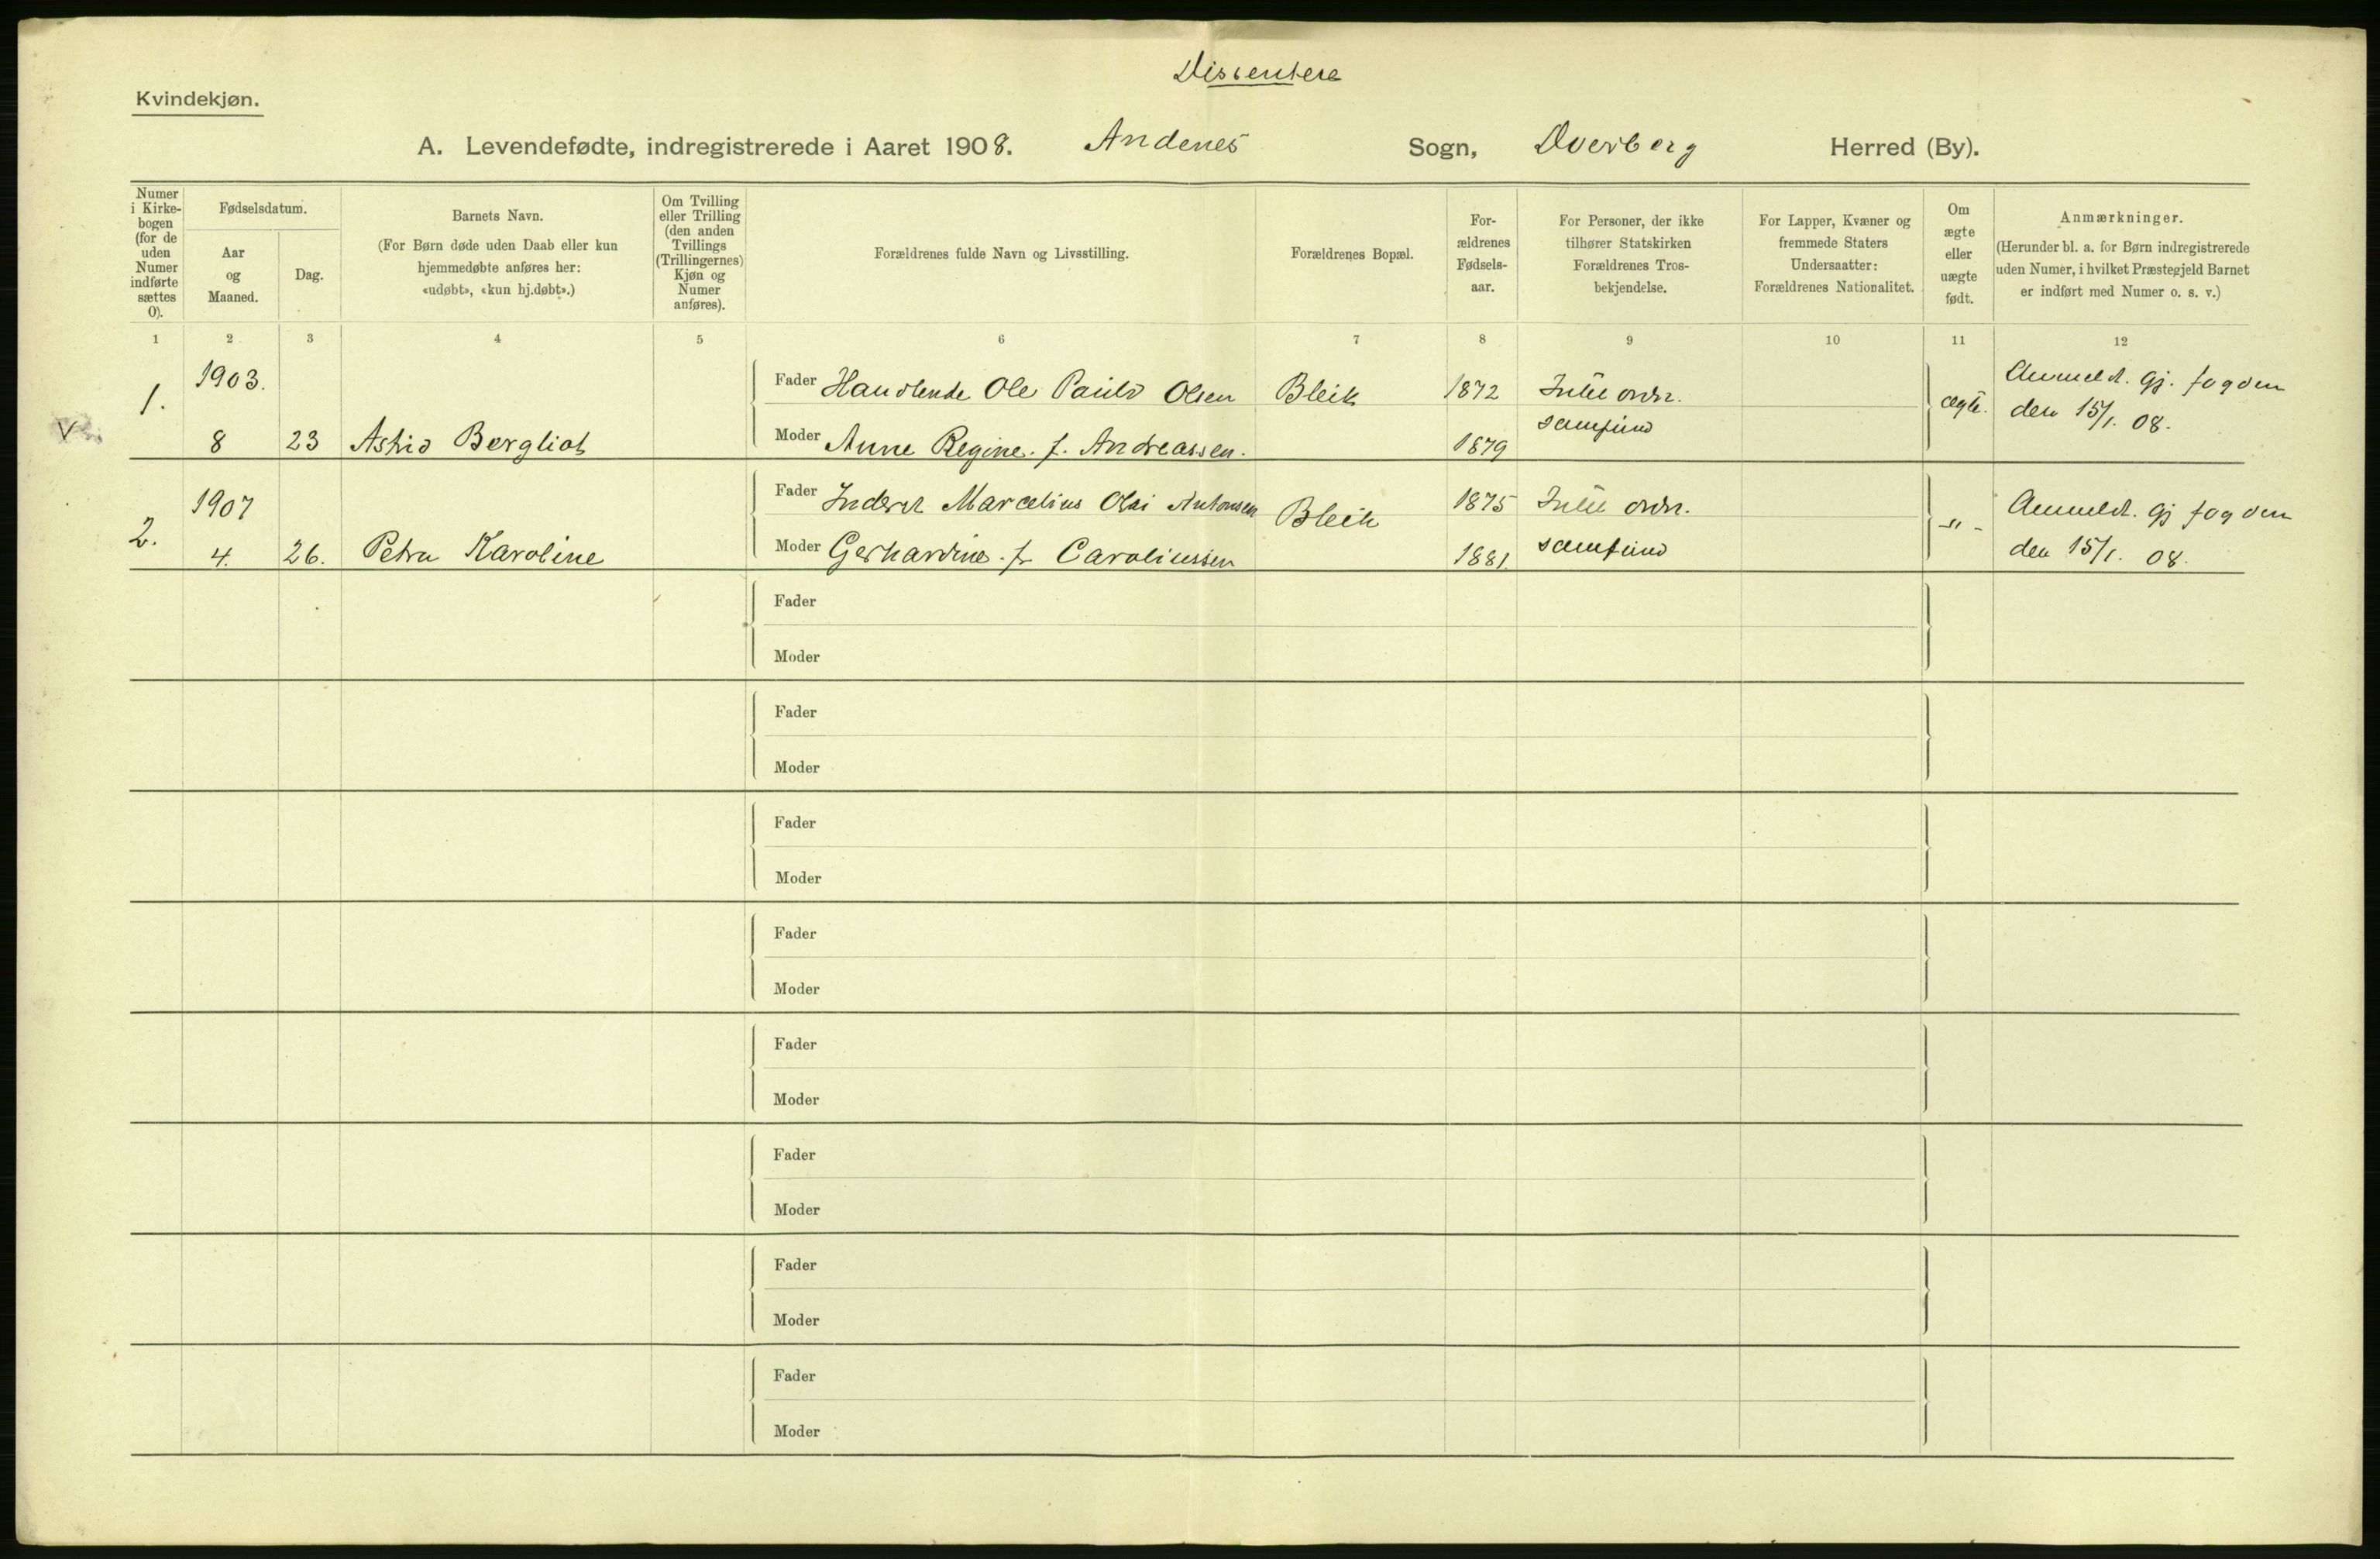 Dissentere
Kvindekjøn.
A. Levendefødte, indregistrerede i Aaret 1908. Andenes Sogn, Dverberg Herred (By).
Numer i Kirkebogen (for de uden Numer indførte sættes 0).
Fødselsdatum.
Aar og Maaned.
Dag.
Barnets Navn.
(For Børn døde uden Daab eller kun hjemmedøbte anføres her: «udøbt», «kun hj.døbt».)
Om Tvilling eller Trilling (den anden Tvillings (Trillingernes) Kjøn og Numer anføres).
Forældrenes fulde Navn og Livsstilling.
Forældrenes Bopæl.
Forældrenes Fødselsaar.
For Personer, der ikke tilhører Statskirken Forældrenes Trosbekjendelse.
For Lapper, Kvæner og fremmede Staters Undersaatter: Forældrenes Nationalitet.
Om ægte eller uægte født.
Anmærkninger.
(Herunder bl. a. for Børn indregistrerede uden Numer, i hvilket Præstegjeld Barnet er indført med Numer o. s. v.)
1 2 3 4 5 6 7 8 9 10 11 12
1. 1903. Fader Handlende Ole Paulo Olsen Bleik 1872 ordn. ægte. Anmeldt. gj. fogden
V 8 23 Astrid Bergliot Moder Anne Regine. f. Andreassen. 1879 samfund den 15/1. 08.
2. 1907 Fader Inderst Marcelius Olai Antonsen Bleik 1875 ordn. -"- Anmeldt. gj fogden
4. 26. Petra Karoline Moder Gerhardine. f. Caroliussen 1881. samfund den 15/1. 08.
Fader
Moder
Fader
Moder
Fader
Moder
Fader
Moder
Fader
Moder
Fader
Moder
Fader
Moder
Fader
Moder